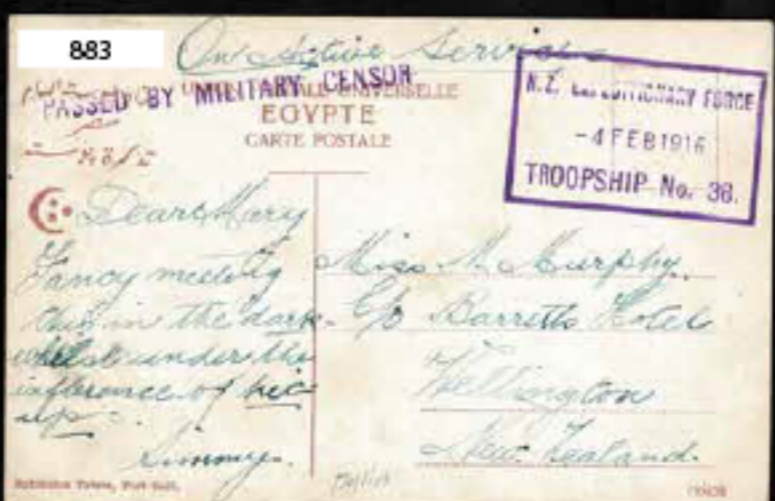 883
On Active Service
PASSED BY MILITARY CENSOR
UNIVERSELLE
EGYPTE
CARTE POSTALE
N.Z. EXPEDITIONARY FORCE
-4 FEB 1916
TROOPSHIP No. 38.
Dear Mary
Fancy meeting
this in the dark
whilst under the
inference of hic-
up
Jimmy.
Miss M. Murphy.
C/o Barretts Hotel
Wellington
New Zealand.
Port Said.